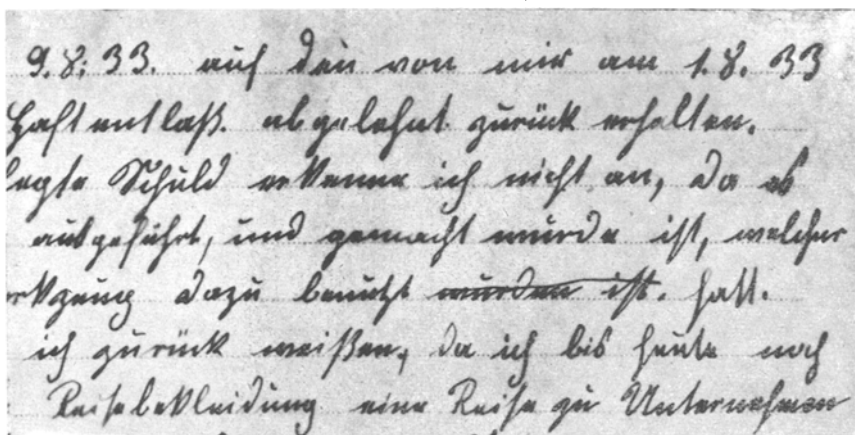 9.8.33. auf den von mir am 1.8.33
Haftentlaß. abgelehnt zurück erhalten.
legte Schuld erkenne ich nicht an, da es
ausgeführt, und gemacht wurde ist, welcher
rkzeug dazu benutzt wurden ist. hatt.
ich zurück weißen, da ich bis heute noch
Reisebekleidung eine Reise zu Unternehmen